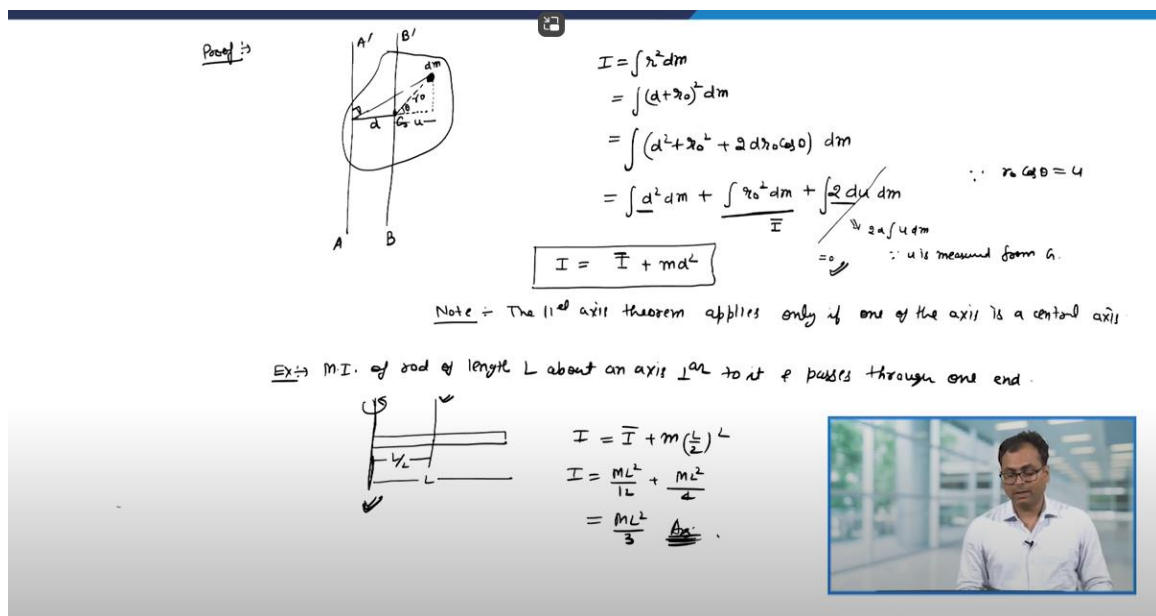 Proof :→
A' B'
dm
r₀
θ
d G u
A B
I = ∫ r² dm
= ∫ (d + r₀)² dm
= ∫ (d² + r₀² + 2 d r₀ cos θ) dm
= ∫ d² dm + ∫ r₀² dm + ∫ 2 d u dm
Ī
∵ r₀ cos θ = u
2d ∫ u dm
= 0 ∵ u is measured from G.
I = Ī + md²
Note :- The ||el axis theorem applies only if one of the axis is a central axis
Ex :→ M.I. of rod of length L about an axis ⊥ar to it & passes through one end .
L/2
L
I = Ī + m (L/2)²
I = ML²/12 + ML²/4
= ML²/3 Ans .